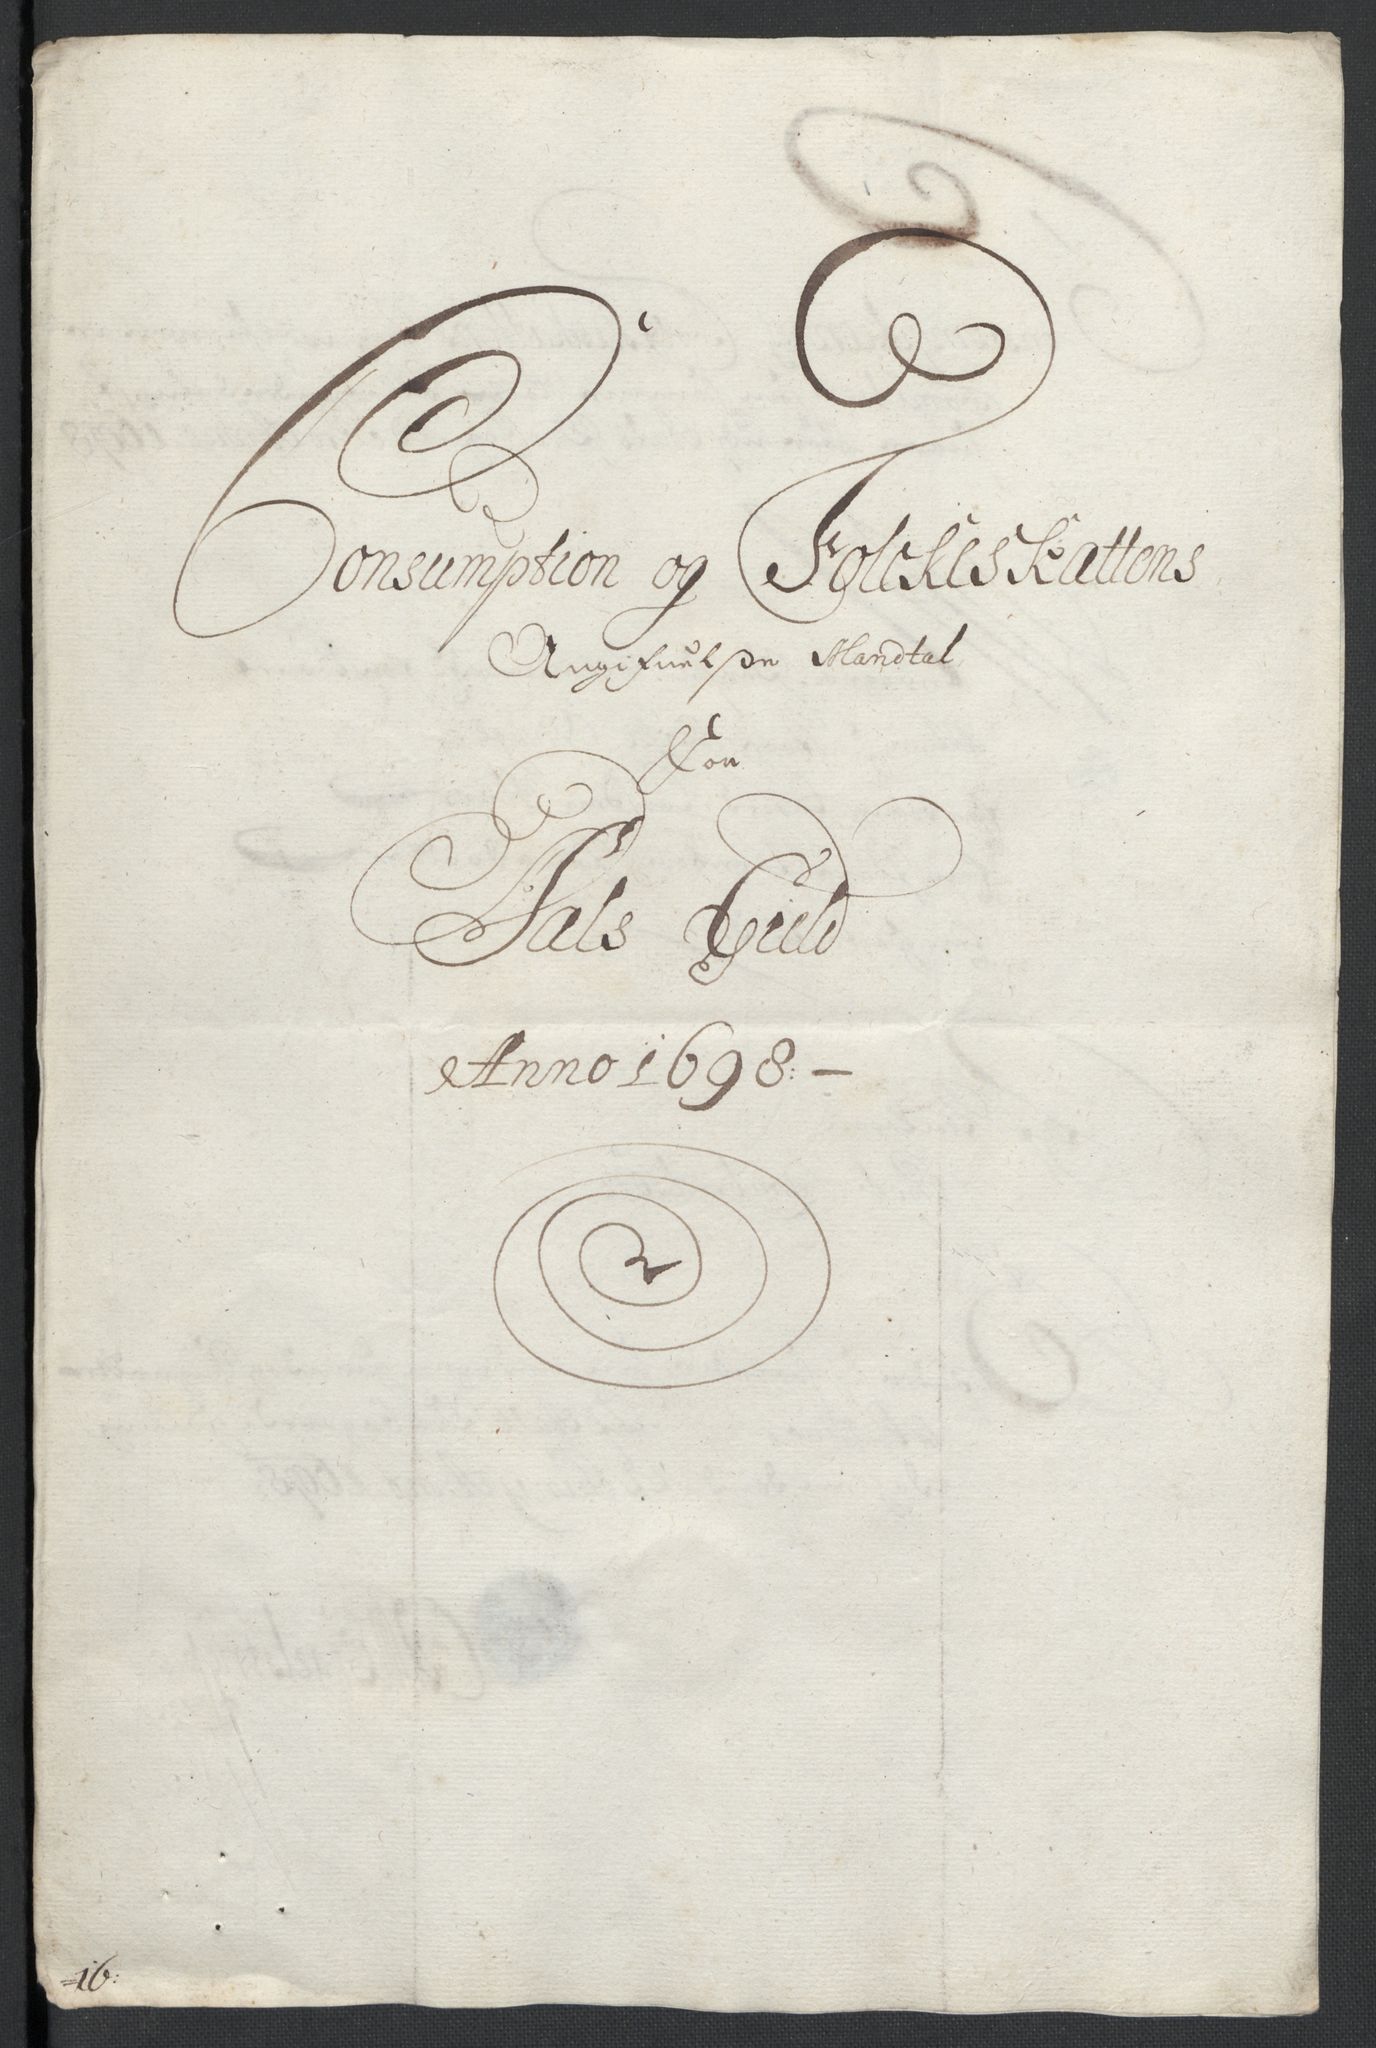 Consumption og Folckeskattens
Angifuelsse Mandtal
For
Aals Gield
Anno 1698: –
=16: